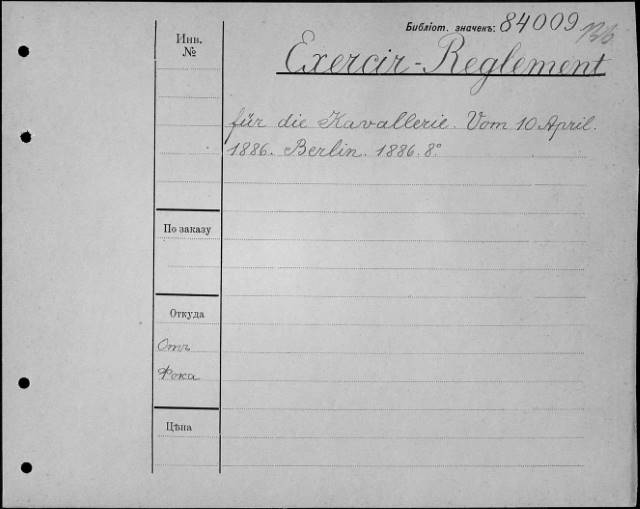 Библіот. значекъ: 84009
Инв.
№
Exercir-Reglement
für die Kavallerie. Vom 10 April.
1886. Berlin. 1886. 8°
По заказу
Откуда
Отъ
Фока
Цѣна